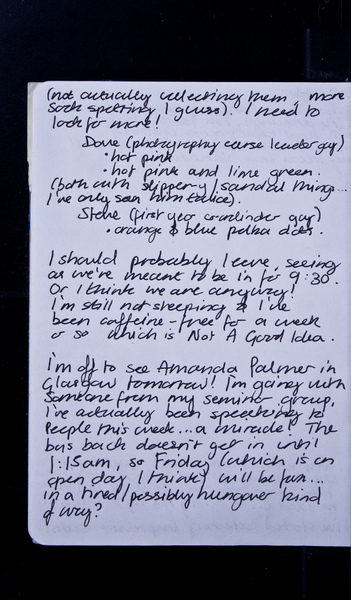 (not actually collecting them, more
sock spotting I guess). I need to
look for more!
Dave (photography course leader guy)
• hot pink
• hot pink and lime green.
(both with slipper-y/sandal things...
I've only seen him twice).
Steve (first year coordinator guy)
• orange & blue polka dots.
I should probably leave, seeing
as we're meant to be in for 9:30.
Or I think we are anyway!
I'm still not sleeping & I've
been caffeine-free for a week
or so which is Not A Good Idea.
I'm off to see Amanda Palmer in
Glasgow tomorrow! I'm going with
someone from my seminar group,
I've actually been speaking to
people this week... a miracle! The
bus back doesn't get in until
1:15am, so Friday (which is an
open day, I think) will be fun...
in a tired/possibly hungover kind
of way?